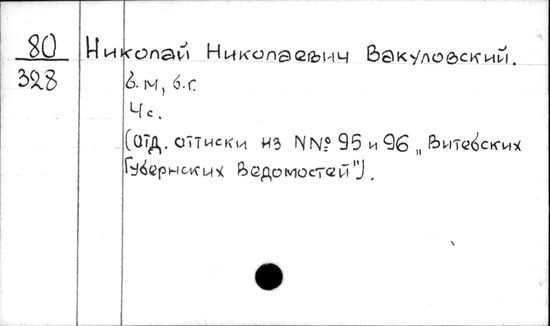 80 Николай Николаевич Вакуловский.
328 б.м, б.г.
4 с.
(отд. оттиски из NNº 95 и 96 „Витебских
Губернских Ведомостей").